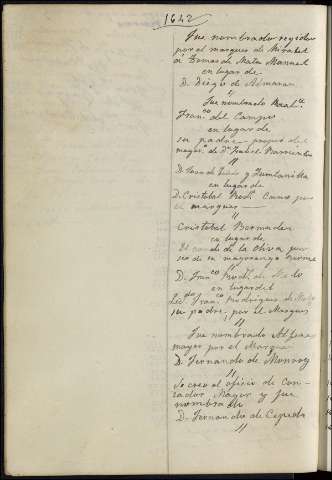 1642
Fue nombrado regidor
por el marques de Mirabel
á Tomas de Mata Manuel
en lugar de
D. Diego de Almaraz
"
Fue nombrado
Fran.co del Campo
en lugar de
su padre
mayor.go de D.ª Isabel Barrientos
"
D. Juan de
en lugar de
D. Cristobal Rod.z Cano por
el marques
"
Cristobal Bermudez
en lugar de
de la Oliva
de su mayorazgo
D. Fran.co Rod.z de
en lugar del
Lic.do Fran.co Rodriguez de
su padre, por el Marques
"
Fue nombrado Alferez
mayor por el Marques
D. Fernando de Monroy
"
Se creo el oficio de Con-
tador Mayor y fue
nombrado
D. Fernando de Cepeda
"